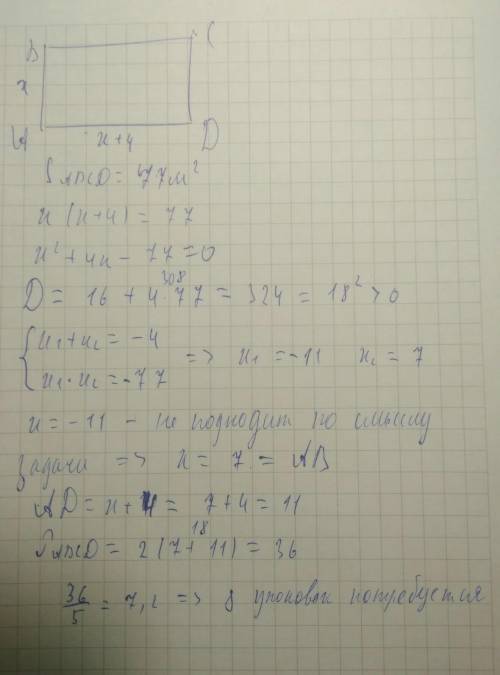 B C
x
A x+4 D
S ABCD = 77 м²
x(x+4) = 77
x² + 4x - 77 = 0
308
D = 16 + 4·77 = 324 = 18² > 0
{ x₁+x₂ = -4
x₁·x₂ = -77 => x₁ = -11 x₂ = 7
x = -11 - не подходит по смыслу
задачи => x = 7 = AB
AD = x+4 = 7+4 = 11
18
P ABCD = 2(7+11) = 36
36/5 = 7,2 => 8 упоковок потребуется